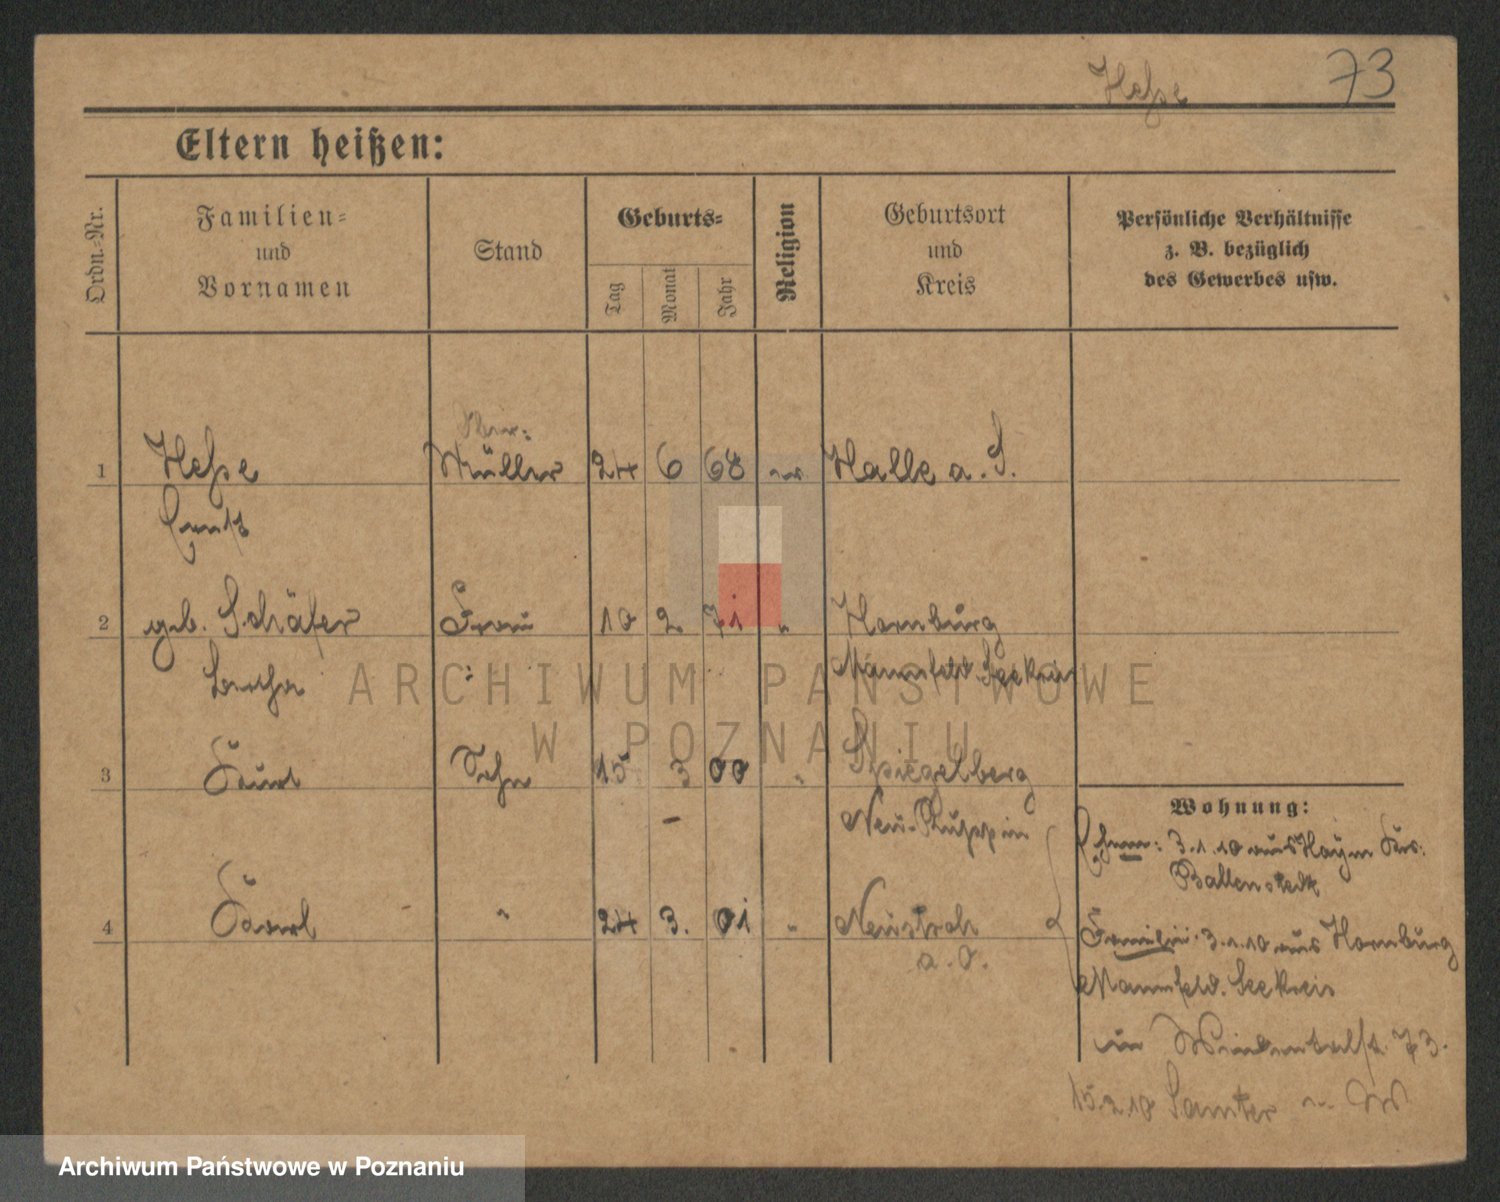 Heße 73
Eltern heißen:
Ordn.-Nr.
Familien-
und
Vornamen
Stand
Geburts-
Tag
Monat
Jahr
Religion
Geburtsort
und
Kreis
Persönliche Verhältnisse
z. B. bezüglich
des Gewerbes usw.
1 Heße Müller 24 6 68 ev Halle a. S.
Ernst
2 geb. Schäfer Frau 10 2. 71 " Hornburg
Bertha Mannsfeld Seekreis
3 Kurt Sohn 15 3 00 " Spiegelberg
Neu-Ruppin
4 Karl " 24 3. 01 " Neustadt
a. O.
Wohnung:
Ehem: 3.1.10 aus Hoym Krs:
Ballenstedt
Familie 3.1.10 aus Hornburg
Mannsfeld. Seekreis
in 73.
15.2.10 Samter
ARCHIWUM PAŃSTWOWE
W POZNANIU
Archiwum Państwowe w Poznaniu